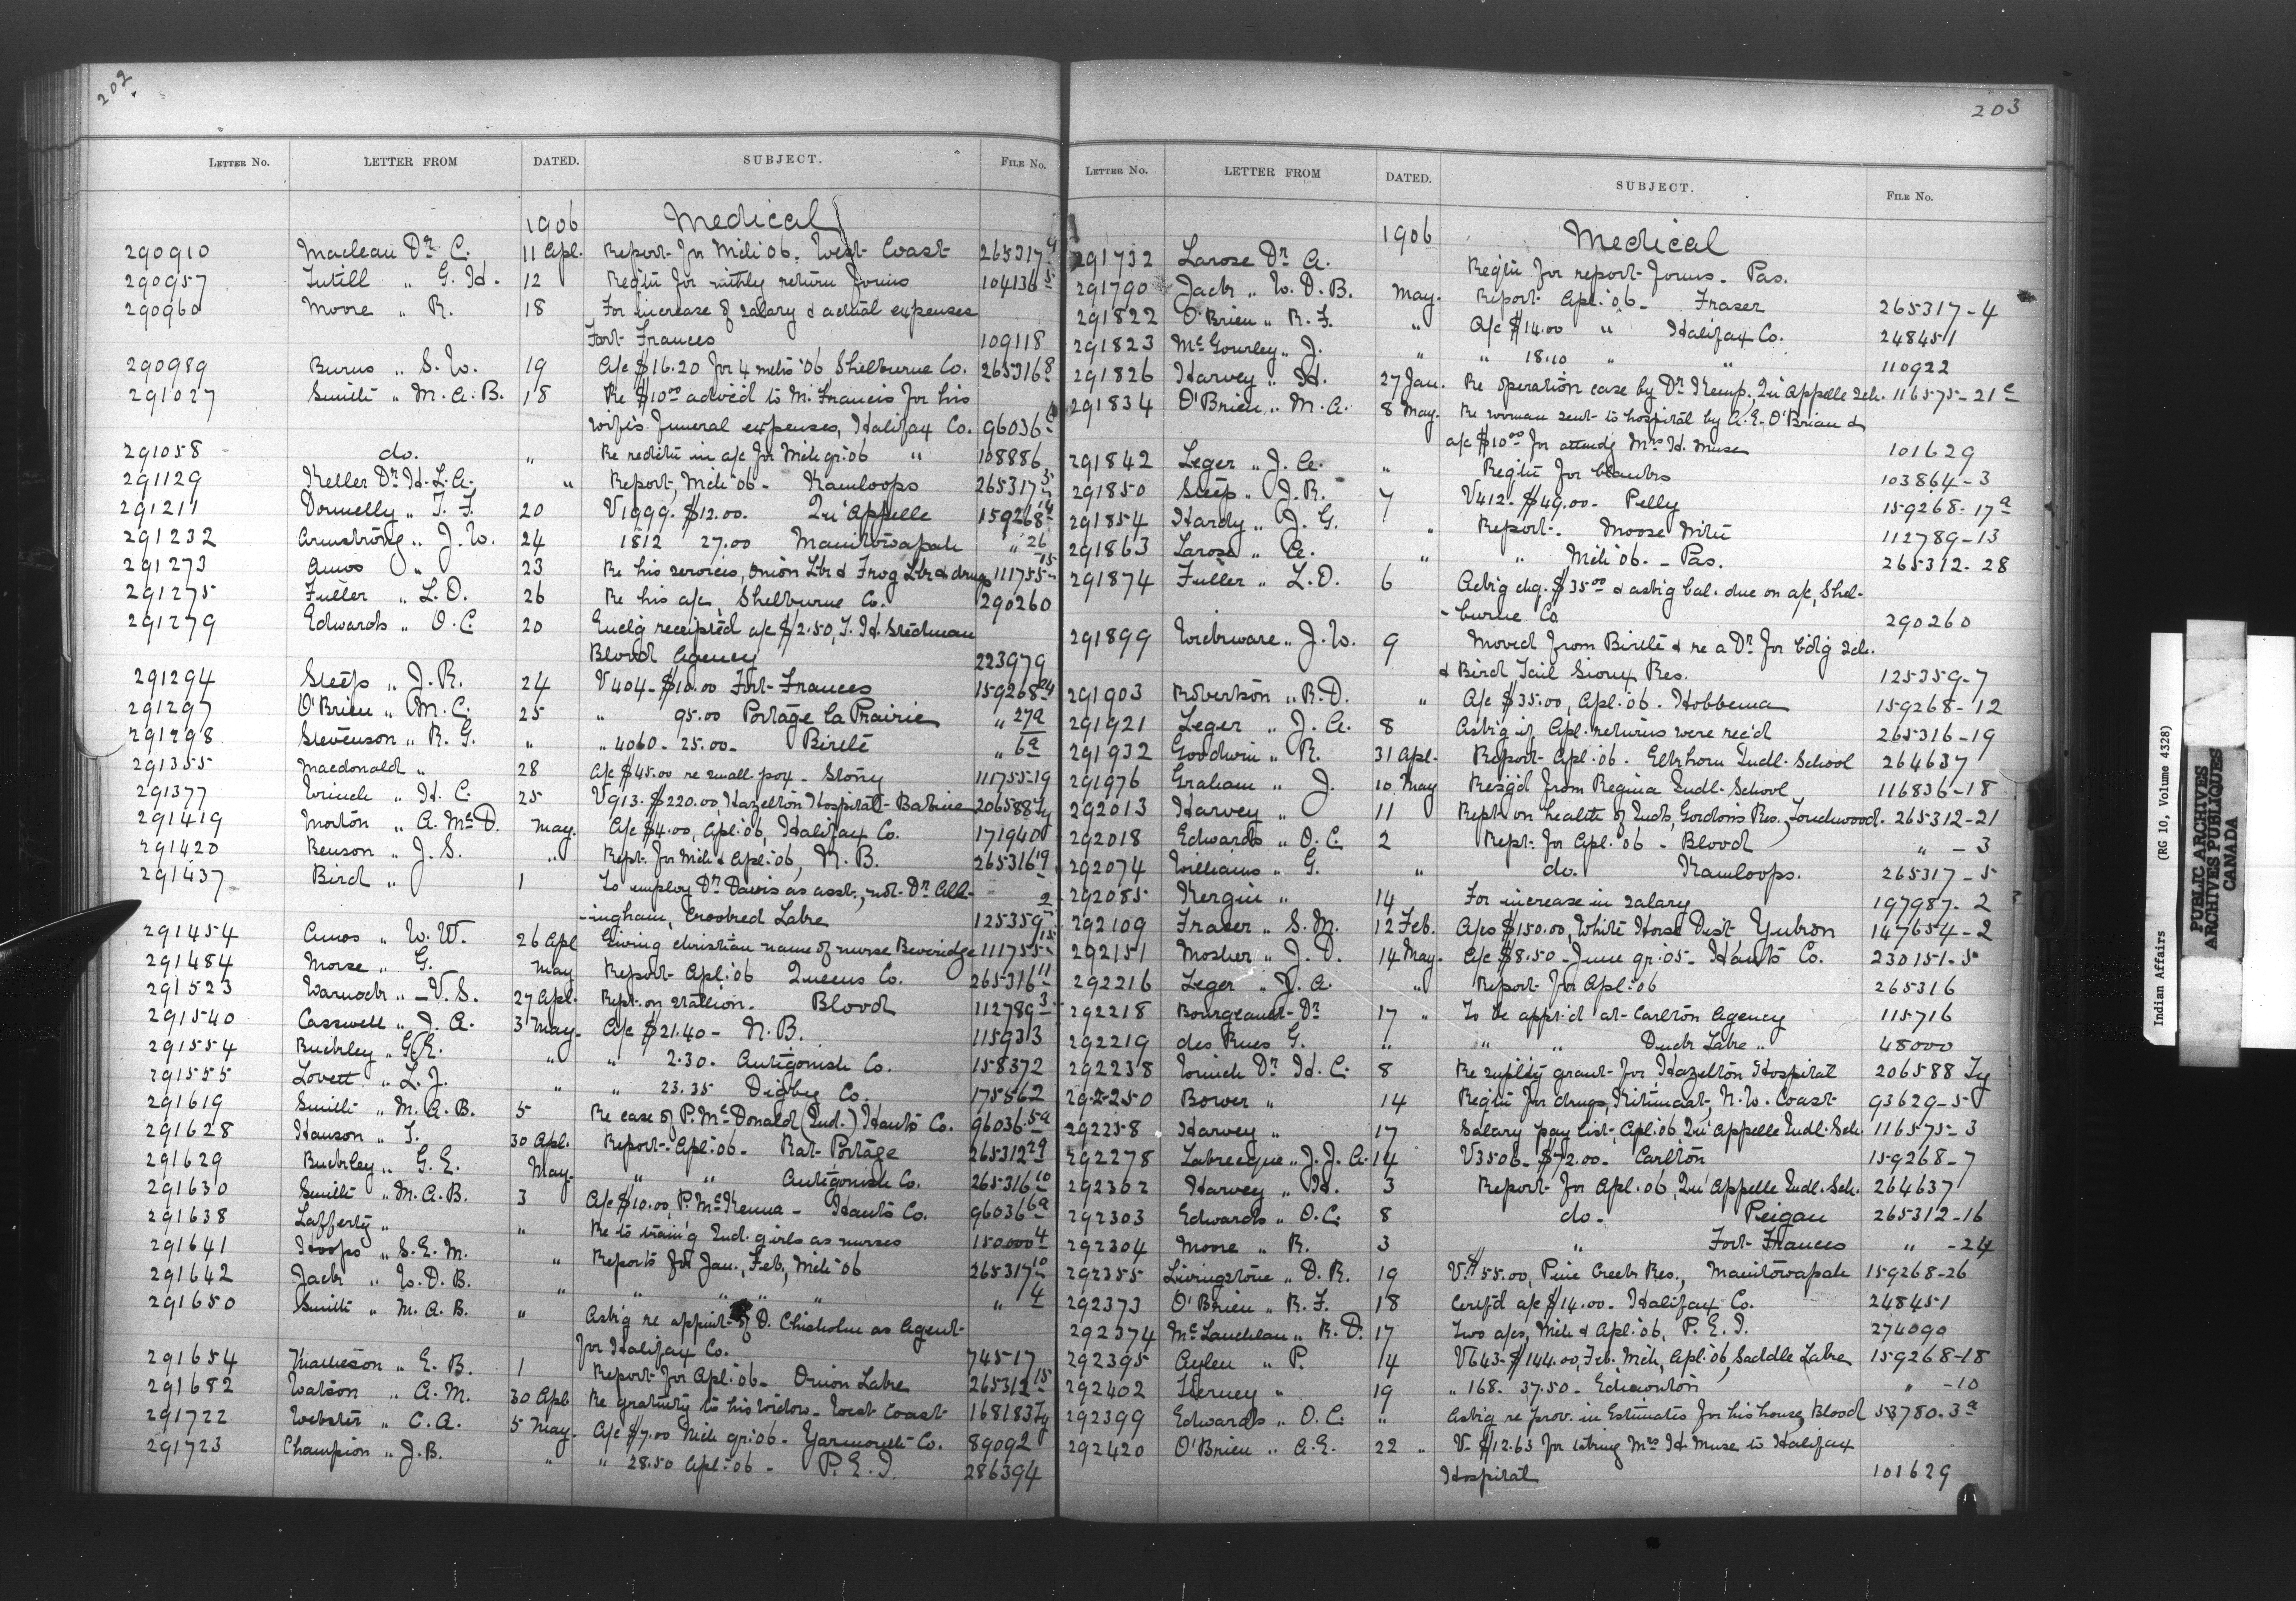 202
LETTER No. LETTER FROM DATED. SUBJECT. FILE No.
1906 Medical
290910 Maclean Dr. C. 11 Apl. Report for Mch '06. West Coast 265317 9
290957 Tutill " G. H. 12 Reqtu for mthly return forms 104136 5
290960 Moore " R. 18 For increase of salary & actual expenses
Fort Frances 109118
290989 Burns " S. W. 19 A/c $16.20 for 4 mths '06 Shelburne Co. 265316 8
291027 Smith " M. A. B. 18 Re $10.00 advc'd to M. Francis for his
wife's funeral expenses, Halifax Co. 96036
291058 do. " Re redctn in a/c for Mch qr. '06 " 108886
291129 Keller Dr. H. L. A. " Report, Mch '06 - Kamloops 265317 5
291211 Donnelly " T. F. 20 V1999. $12.00. Qu'Appelle 159268 14
291232 Armstrong " J. W. 24 1812 27.00 Manitowapah " 26
291273 Amos " 23 Re his services, Onion Lke & Frog Lke & drugs 111755 15
291275 Fuller " L. O. 26 Re his a/c, Shelburne Co. 290260
291279 Edwards " O. C. 20 Enclg receipted a/c $2.50, T. H. Stedman
Blood Agency 223979
291294 Steep " J. R. 24 V404 - $10.00 Fort Frances 159268 24
291297 O'Brien " M. C. 25 " 95.00 Portage la Prairie " 27a
291298 Stevenson " R. G. " " 4060 - 25.00 - Birtle " 6a
291355 Macdonald " 28 A/c $45.00 re small pox - Stony 111755-19
291377 Wrinch " H. C. 25 V913. $220.00, Hazelton Hospital - Babine 206588 Ty
291419 Morton " A. McD. May. A/c $4.00, Apl. '06, Halifax Co. 171940
291420 Benson " J. S. " Rept. for Mch & Apl. '06, N. B. 265316 19
291437 Bird " 1 To employ Dr. Davis as asst., not Dr. All-
-ingham, Crooked Lake 125359 2
291454 Amos " W. W. 26 Apl Giving christian name of nurse Beveridge 111755 15
291484 Morse " G. May Report Apl. '06 Queens Co. 265316 11
291523 Warnock " V. S. 27 Apl. Rept. on stallion. Blood 112789 3
291540 Casswell " J. A. 3 May. A/c $21.40 - N. B. 115913
291554 Buckley " G. E. " " 2.30. Antigonish Co. 158372
291555 Lovett " L. J. " " 23.35 Digby Co. 175562
291619 Smith " M. A. B. 5 Re case of P. McDonald (Ind.) Hants Co. 96036 5a
291628 Hanson " T. 30 Apl. Report Apl. '06 - Rat Portage 265312 29
291629 Buckley " G. E. May. " " Antigonish Co. 265316 10
291630 Smith " M. A. B. 3 A/c $10.00, P. McKenna - Hants Co. 96036 6a
291638 Lafferty " " Re to train'g Ind. girls as nurses 150000 4
291641 Hoops " S. E. M. " Reports for Jan., Feb., Mch '06 265317 10
291642 Jack " W. D. B. " " " " " " 4
291650 Smith " M. A. B. " Ask'g re appmt of D. Chisholm as Agent
for Halifax Co. 74517
291654 Matheson " E. B. 1 Report for Apl. '06 - Onion Lake 265312 15
291682 Watson " A. M. 30 Apl Re gratuity to his widow - West Coast 168183 Ty
291722 Webster " C. A. 5 May. A/c $7.00 Mch qr. '06 - Yarmouth Co. 89092
291723 Champion " J. B. " " 28.50 Apl. '06 - P. E. I. 286394
203
LETTER No. LETTER FROM DATED. SUBJECT. FILE No.
1906 Medical
291732 Larose Dr. A. Reqtu for report forms - Pas.
291790 Jack " W. D. B. May. Report Apl. '06 - Fraser 265317-4
291822 O'Brien " R. F. " A/c $14.00 " Halifax Co. 248451
291823 McGourley " J. " " 18.10 " " 110922
291826 Harvey " H. 27 Jan. Re operation case by Dr. Kemp, Qu'Appelle Sch. 116575-21c
291834 O'Brien " M. A. 8 May. Re woman sent to hospital by A. E. O'Brian &
a/c $10.00 for attendg Mrs. H. Muse 101629
291842 Leger " J. A. " Reqtu for blanks 103864-3
291850 Steep " J. R. 7 V412 - $49.00 - Pelly 159268-17a
291854 Hardy " J. G. " Report - Moose Mtn 112789-13
291863 Larose " A. " " Mch '06 - Pas. 265312-28
291874 Fuller " L. O. 6 Ackg chq. $35.00 & askg bal. due on a/c, Shel-
-burne Co 290260
291899 Wickware " J. W. 9 Moved from Birtle & re a Dr. for bdg Sch.
& Bird Tail Sioux Res. 125359-7
291903 Robertson " R. D. " A/c $35.00, Apl. '06. Hobbema 159268-12
291921 Leger " J. A. 8 Ask'g if Apl. returns were rec'd 265316-19
291932 Goodwin " R. 31 Apl. Report Apl. '06. Elkhorn Indl. School 264637
291976 Graham " J. 10 May Resg'd from Regina Indl. School 116836-18
292013 Harvey " 11 Rept. on health of Inds, Gordon's Res., Touchwood. 265312-21
292018 Edwards " O. C. 2 Rept. for Apl. '06 - Blood " - 3
292074 Williams " G. " do. Kamloops. 265317-5
292085 Kergin " 14 For increase in salary 197987-2
292109 Fraser " S. M. 12 Feb. A/cs $150.00, White Horse Dist Yukon 147654-2
292151 Mosher " J. D. 14 May. A/c $8.50 - June qr. '05 - Hants Co. 230151-5
292216 Leger " J. A. " Report for Apl. '06 265316
292218 Bourgeault Dr 17 " To be appt'd at Carlton Agency 115716
292219 des Rues G. " " " Duck Lake " 48000
292238 Wrinch Dr. H. C. 8 Re supl'ty grant for Hazelton Hospital 206588 Ty
292250 Bower " 14 Reqtu for drugs, Kitimaat, N. W. Coast 93629-5
292258 Harvey " 17 Salary pay list, Apl. '06, Qu'Appelle Indl. Sch. 116575-3
292278 Labrecque " J. J. A. 14 V3506 - $72.00 - Carlton 159268-7
292302 Harvey " H. 3 Report for Apl. '06, Qu'Appelle Indl. Sch. 264637
292303 Edwards " O. C. 8 do. Peigan 265312-16
292304 Moore " R. 3 " " Fort Frances " -24
292355 Livingstone " D. R. 19 V. $55.00, Pine Creek Res., Manitowapah 159268-26
292373 O'Brien " R. F. 18 Certf'd a/c $14.00 - Halifax Co. 248451
292374 McLauchlan " R. D. 17 Two a/cs, Mch & Apl. '06, P. E. I. 274090
292395 Aylen " P. 14 V643 - $144.00, Feb. Mch, Apl. '06, Saddle Lake 159268-18
292402 Tierney " 19 " 168. 37.50 - Edmonton " -10
292399 Edwards " O. C. " Ask'g re prov. in Estimates for his house, Blood 53780-3a
292420 O'Brien " A. E. 22 " V. $12.63 for taking Mrs. H. Muse to Halifax
Hospital 101629
Indian Affairs (RG 10, Volume 4328)
PUBLIC ARCHIVES
ARCHIVES PUBLIQUES
CANADA